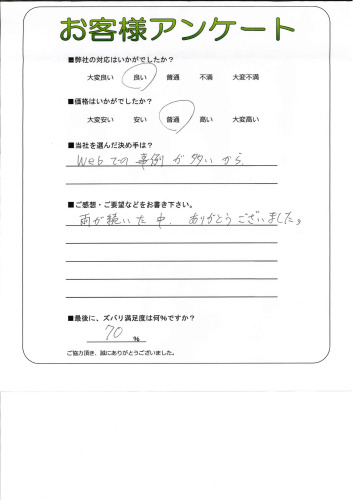 お客様アンケート
■弊社の対応はいかがでしたか？
大変良い 良い 普通 不満 大変不満
■価格はいかがでしたか？
大変安い 安い 普通 高い 大変高い
■当社を選んだ決め手は？
Webでの事例が多いから。
■ご感想・ご要望などをお書き下さい。
雨が続いた中、ありがとうございました。
■最後に、ズバリ満足度は何％ですか？
70 ％
ご協力頂き、誠にありがとうございました。